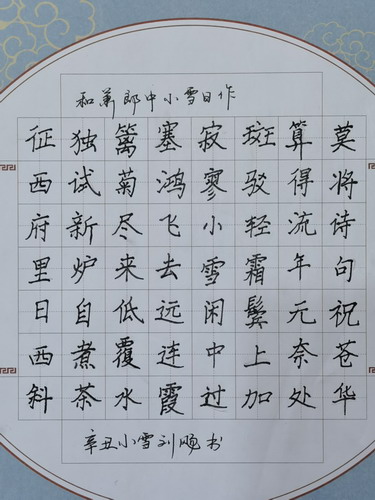 和萧郎中小雪日作
征西府里日西斜
独试新炉自煮茶
篱菊尽来低覆水
塞鸿飞去远连霞
寂寥小雪闲中过
斑驳轻霜鬓上加
算得流年元奈处
莫将诗句祝苍华
辛丑小雪刘书